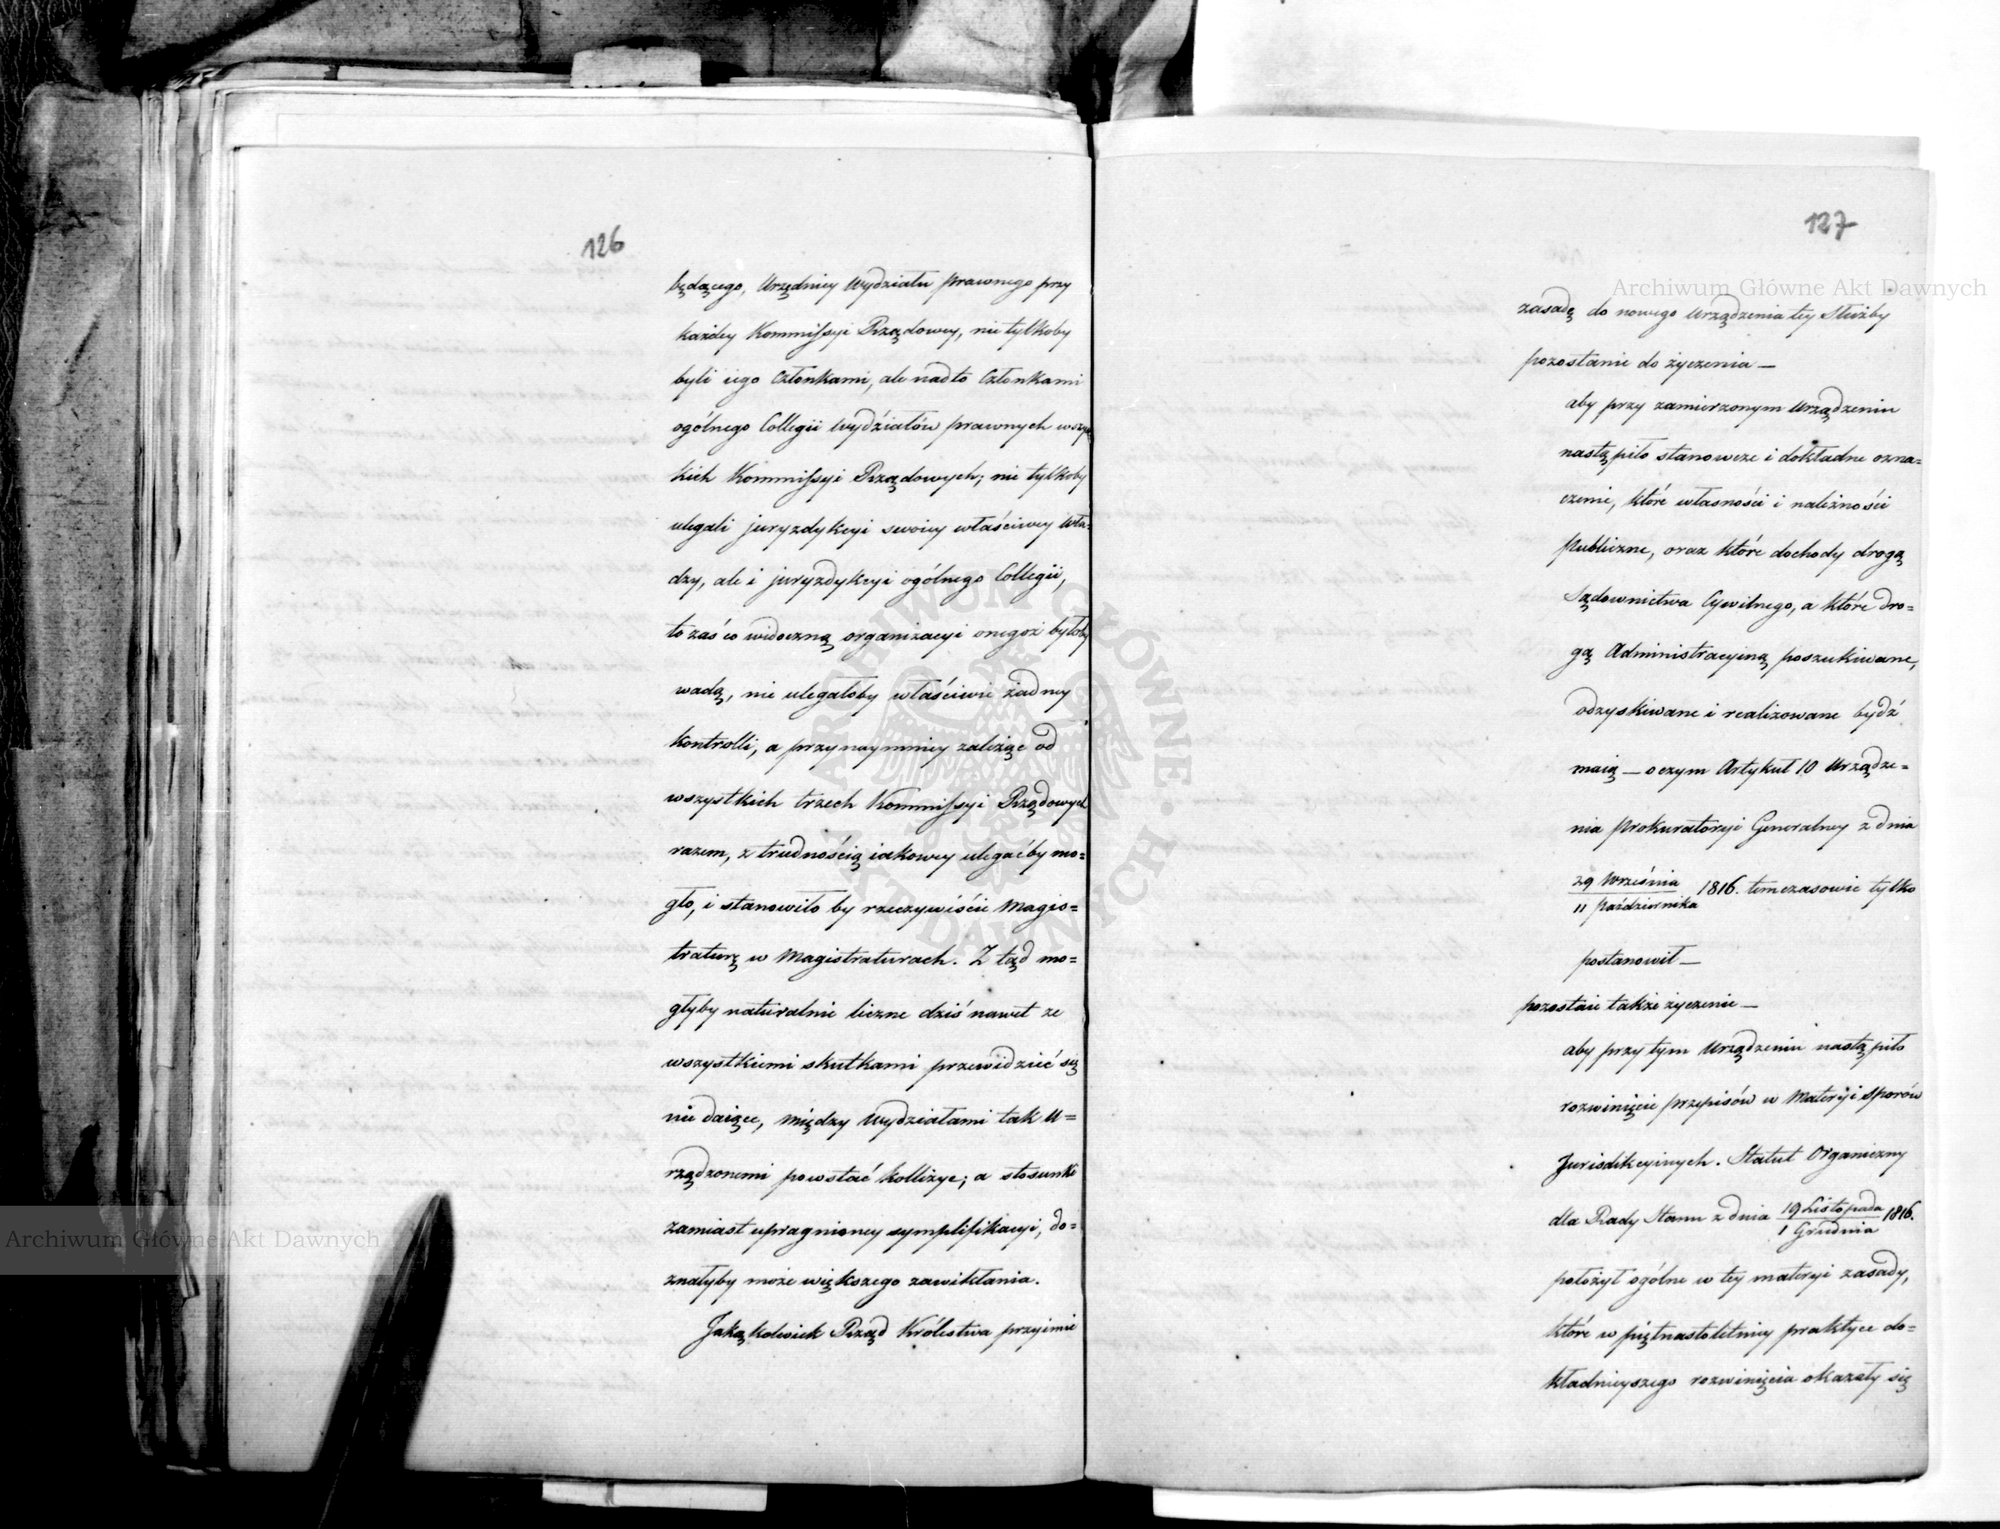 126
będącego, Urzędnicy Wydziału Prawnego przy
każdey Kommissyi Rządowey, nie tylkoby
byli iego Członkami, ale nadto Członkami
ogólnego Collegii Wydziałów prawnych wszyst
kich Kommissyi Rządowych; nie tylkoby
ulegali juryzdykcyi swoiey właściwey Wła=
dzy, ale i juryzdykcyi ogólnego Collegii,
to zaś co widoczną organizacyi onegoż byłoby
wadą, nie ulegałoby właściwie żadney
kontrolli, a przynaymniey zależąc od
wszystkich trzech Kommissyi Rządowych
razem, z trudnością iakowey ulegaćby mo=
gło, i stanowiło by rzeczywiście Magis=
traturę w Magistraturach. Z tąd mo=
głyby naturalnie liczne dziś nawet ze
wszystkiemi skutkami przewidzieć się
nie daiące, między Wydziałami tak u=
rządzonemi powstać kollizye; a stosunki
zamiast upragnioney symplifikacyi, do=
znałyby może większego zawikłania.
Jakąkolwiek Rząd Królestwa przyimie
127
zasadę do nowego urządzenia tey Służby
pozostanie do życzenia —
aby przy zamierzonym Urządzeniu
nastąpiło stanowcze i dokładne ozna=
czenie, które własności i należności
Publiczne, oraz które dochody drogą
Sądownictwa Cywilnego, a które dro=
gą Administracyiną poszukiwane,
odzyskiwane i realizowane bydź
maią — o czym Artykuł 10 Urządze=
nia Prokuratoryi Generalney z dnia
29 Września
11 Października 1816. tymczasowie tylko
postanowił —
pozostaie także życzenie —
aby przy tym Urządzeniu nastąpiło
rozwinięcie przepisów w Materyi Sporów
Jurisdikcyinych. Statut Organiczny
dla Rady Stanu z dnia 19 Listopada 1816.
1 Grudnia
położył ogólne w tey materyi zasady,
które w piętnastoletniey praktyce do=
kładnieyszego rozwinięcia okazały się
Archiwum Główne Akt Dawnych
Archiwum Główne Akt Dawnych
ARCHIWUM GŁÓWNE AKT DAWNYCH